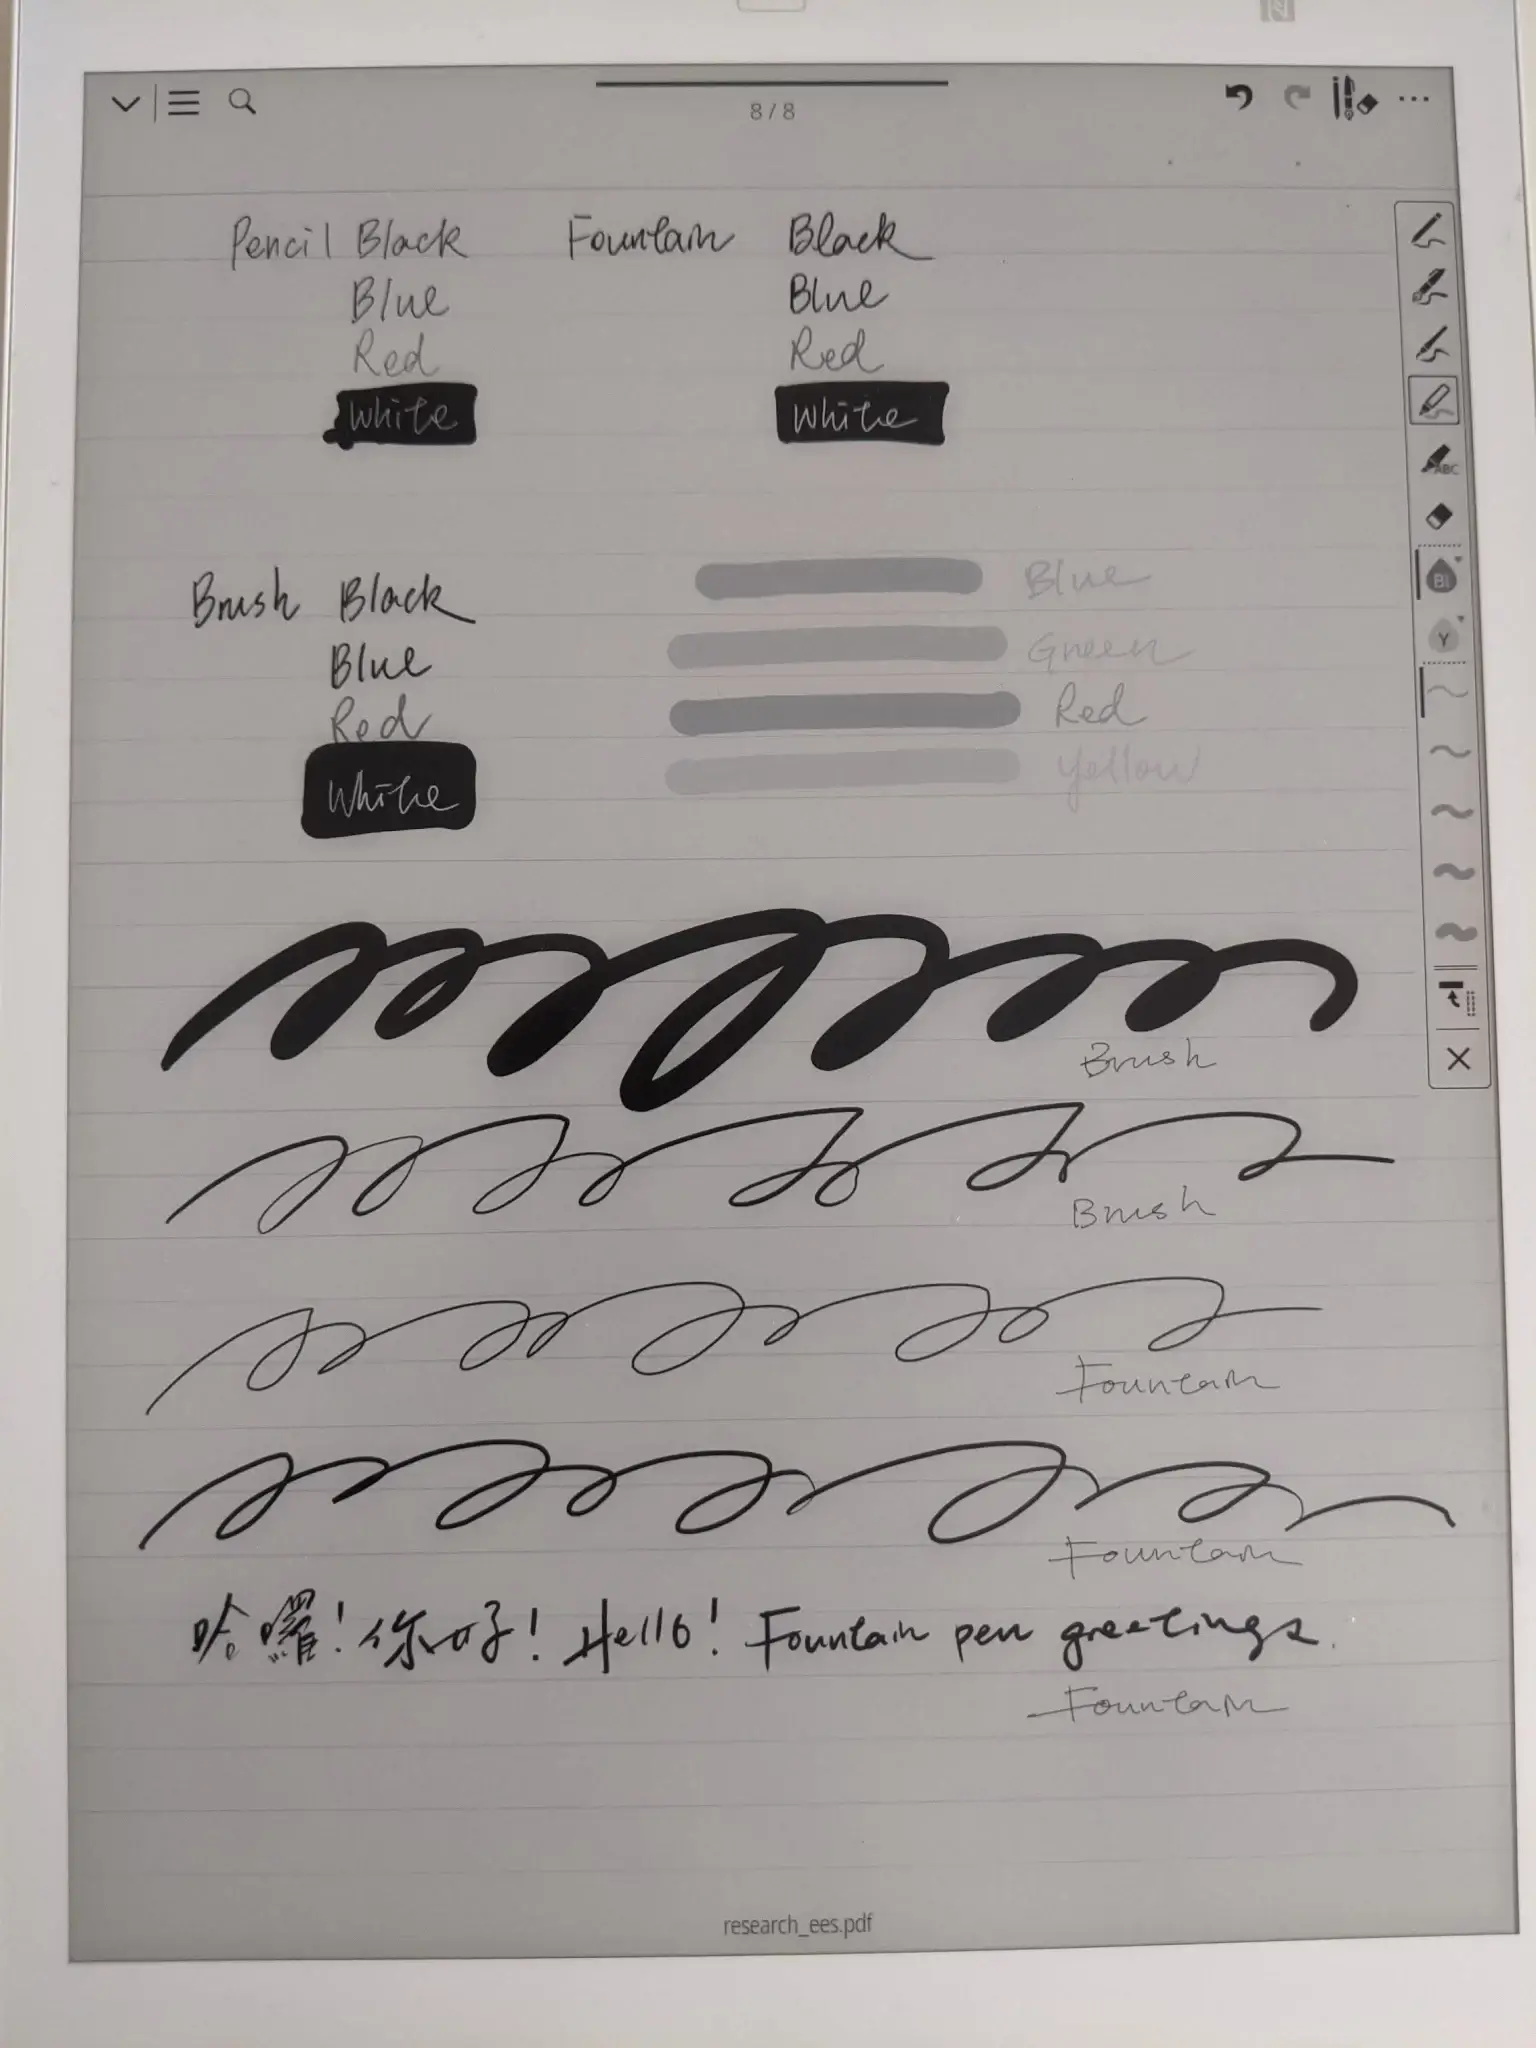 8 / 8
Pencil Black Fountain Black
Blue Blue
Red Red
White White
ABC
Brush Black
Blue
Red
White
Blue
Green
Red
Yellow
Bl
Y
Brush
Brush
Fountain
Fountain
哈囉！你好！Hello! Fountain pen greetings.
Fountain
research_ees.pdf